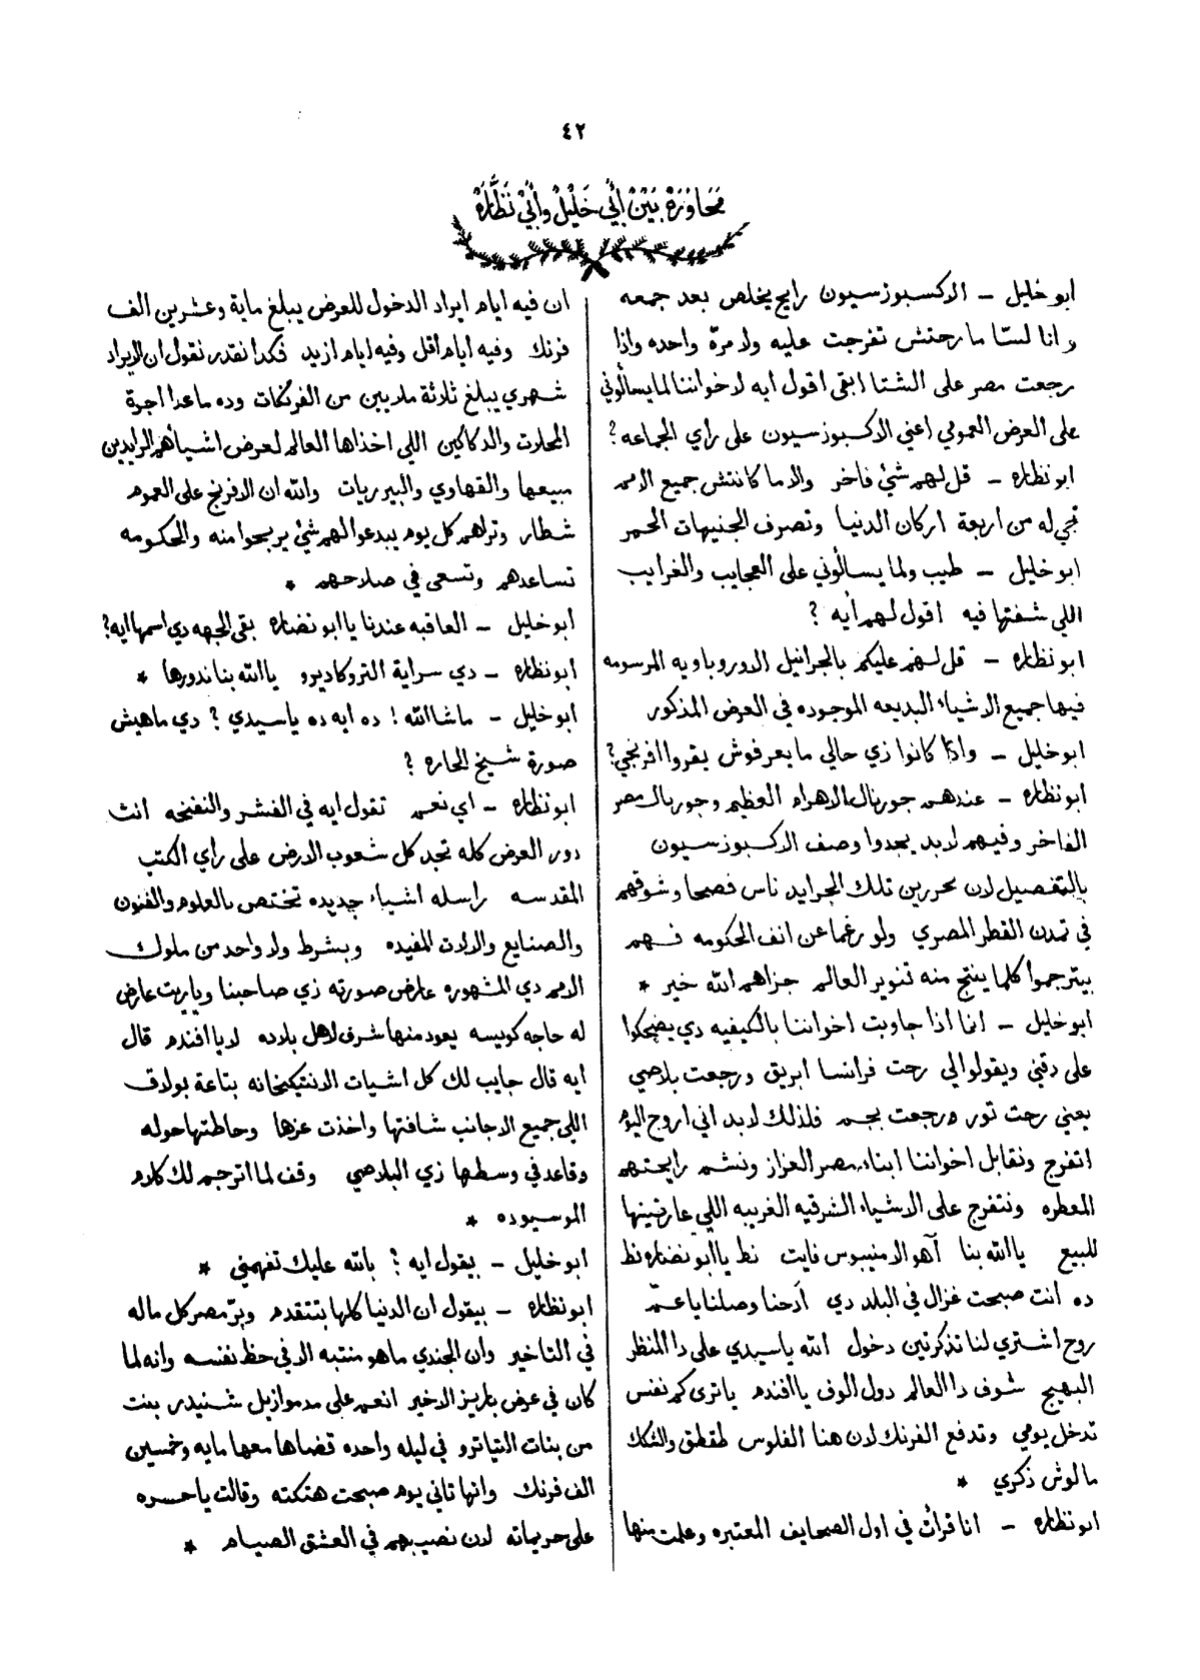 ٤٢
محاورة بين أبي خليل وأبي نظاره
ابو خليل — الاكسبوزسيون رايح يخلص بعد جمعه
وانا لسّا مارحتش تفرجت عليه ولا مرة واحده واذا
رجعت مصر على الشتا ابقى اقول ايه لاخواننا لما يسألوني
على العرض العمومي اعني الاكسبوزسيون على راي الجماعه ؟
ابو نظاره — قل لهم شئ فاخر والا ما كانتش جميع الامم
تجي له من اربعة اركان الدنيا وتصرف الجنيهات الحمر
ابو خليل — طيب ولما يسألوني على العجايب والغرايب
اللي شفتها فيه اقول لهم أيه ؟
ابو نظاره — قل لهم عليكم بالجرانيل الاوروباويه المرسومه
فيها جميع الاشياء البديعه الموجوده في العرض المذكور
ابو خليل — واذا كانوا زي حالي ما يعرفوش يقروا افرنجي ؟
ابو نظاره — عندهم جورنال الاهرام العظيم وجورنال مصر
الفاخر وفيهم لابد يجدوا وصف الاكسبوزسيون
بالتفصيل لان محررين تلك الجرايد ناس فصحا وشوقهم
في تمدن القطر المصري ولو رغما عن انف الحكومه فهم
بيترجموا كلما ينتج منه تنوير العالم جزاهم الله خير *
ابو خليل — انما اذا جاوبت اخواننا بالكيفيه دي يضحكوا
على دقني ويقولوا لي رحت فرانسا ابريق ورجعت بلاصي
يعني رحت تور ورجعت بجم فلذلك لابد اني اروح اليوم
اتفرج ونقابل اخواننا ابناء مصر العزاز ونشم رايحتهم
المعطره ونتفرج على الاشياء الشرقيه الغريبه اللي عارضينها
للبيع ياالله بنا آهو الامنيبوس فايت نط ياابو نضاره نط
ده انت صبحت غزال في البلد دي أدحنا وصلنا ياعمّ
روح اشتري لنا تذكرتين دخول الله ياسيدي على دا المنظر
البهيج شوف دا العالم دول الوف ياافندم ياترى كم نفس
تدخل يومي وتدفع الفرنك لان هنا الفلوس طقطق والشكك
مالوش ذكري *
ابو نظاره — انا قرأت في اول الصحايف المعتبره وعلمت منها
ان فيه ايام ايراد الدخول للعرض يبلغ ماية وعشرين الف
فرنك وفيه ايام اقل وفيه ايام ازيد فكدا نقدر نقول ان الايراد
شهري يبلغ ثلاثة ملايين من الفرنكات وده ماعدا اجرة
المحلات والدكاكين اللي اخذاها العالم لعرض اشيائهم الرايدين
مبيعها والقهاوي والبيريات والله ان الافرنج على العموم
شطار وتراهم كل يوم يبدعوا لهم شئ يربحوا منه والحكومه
تساعدهم وتسعى في صلاحهم *
أبو خليل — العاقبه عندنا ياابو نضاره بقى الجهه دي اسمها ايه ؟
أبو نظاره — دي سراية التروكاديرو ياالله بنا ندورها *
أبو خليل — ماشاالله ! ده ايه ده ياسيدي ؟ دي ماهيش
صورة شيخ الحاره ؟
ابو نظاره — اي نعم تقول ايه في الفشر والنفخه انت
دور العرض كله تجد كل شعوب الارض على راي الكتب
المقدسه راسله اشياء جديده تختص بالعلوم والفنون
والصنايع والالات المفيده وبشرط ولا واحد من ملوك
الامم دي المشهوره عارض صورته زي صاحبنا وياريت عارض
له حاجه كويسه يعود منها شرف لاهل بلاده لا ياافندم قال
ايه قال جايب لك كل اشيات الانتيكخانه بتاعة بولاق
اللي جميع الاجانب شافتها واخذت عزها وحاطتها حوله
وقاعد في وسطها زي البلاصي وقف لما اترجم لك كلام
الموسيو ده *
ابو خليل — بيقول ايه ؟ بالله عليك تفهمني *
ابو نظاره — بيقول ان الدنيا كلها بتتقدم وبرّ مصر كل ماله
في التاخير وان الجندي ماهو منتبه الا في حظ نفسه وانه لما
كان في عرض باريز الاخير انعم على مدموازيل شنيدر بنت
من بنات التياترو في ليله واحده قضاها معها مايه وخمسين
الف فرنك وانها تاني يوم صبحت هتكته وقالت ياحسره
على حريماته لان نصيبهم في العشق الصيام *